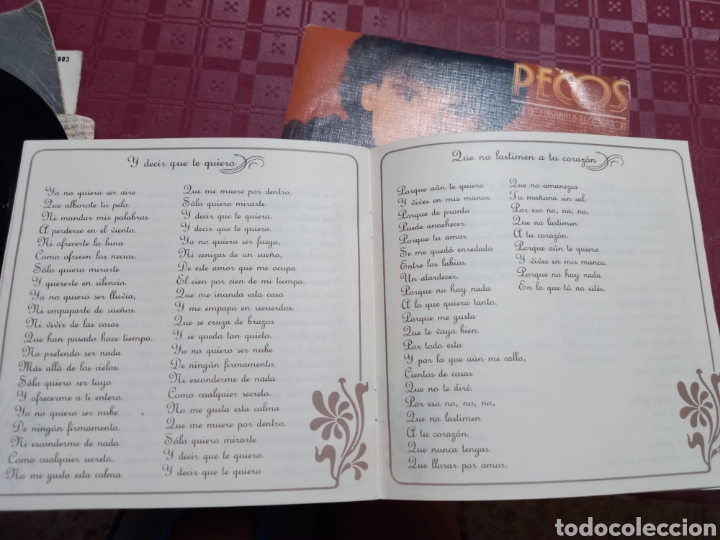 003
PECOS
Y decir que te quiero
Yo no quiero ser aire
Que alborote tu pelo.
Ni mandar mis palabras
A perderse en el viento.
Ni ofrecerte la luna
Como ofrecen los necios.
Sólo quiero mirarte
Y quererte en silencio.
Yo no quiero ser lluvia,
Ni empaparte de sueños.
Ni vivir de las cosas
Que han pasado hace tiempo.
No pretendo ser nada
Más allá de los cielos.
Sólo quiero ser tuyo
Y ofrecerme a ti entero.
Yo no quiero ser nube
De ningún firmamento.
Ni esconderme de nada
Como cualquier secreto.
No me gusta esta calma
Que me muere por dentro.
Sólo quiero mirarte
Y decir que te quiero.
Y decir que te quiero.
Yo no quiero ser fuego,
Ni cenizas de un sueño,
De este amor que me ocupa
El cien por cien de mi tiempo.
Que me inunda esta casa
Y me empapa en recuerdos.
Que se cruza de brazos
Y se queda tan quieto.
Yo no quiero ser nube
De ningún firmamento.
Ni esconderme de nada
Como cualquier secreto.
No me gusta esta calma
Que me muere por dentro.
Sólo quiero mirarte
Y decir que te quiero.
Y decir que te quiero
Que no lastimen a tu corazón
Porque aún te quiero
Y vives en mis manos.
Porque de pronto
Puede anochecer.
Porque tu amor
Se me quedó enredado
Entre los labios
Un atardecer.
Porque no hay nada
A lo que quiera tanto,
Porque me gusta
Que te vaya bien.
Por todo esto
Y por lo que aún me callo,
Cientos de cosas
Que no te diré.
Por eso no, no, no,
Que no lastimen
A tu corazón,
Que nunca tengas
Que llorar por amor.
Que no amanezca
Tu mañana sin sol.
Por eso no, no, no,
Que no lastimen
A tu corazón.
Porque aún te quiero
Y vives en mis manos.
Porque no hay nada
En lo que tú no estés.
todocoleccion